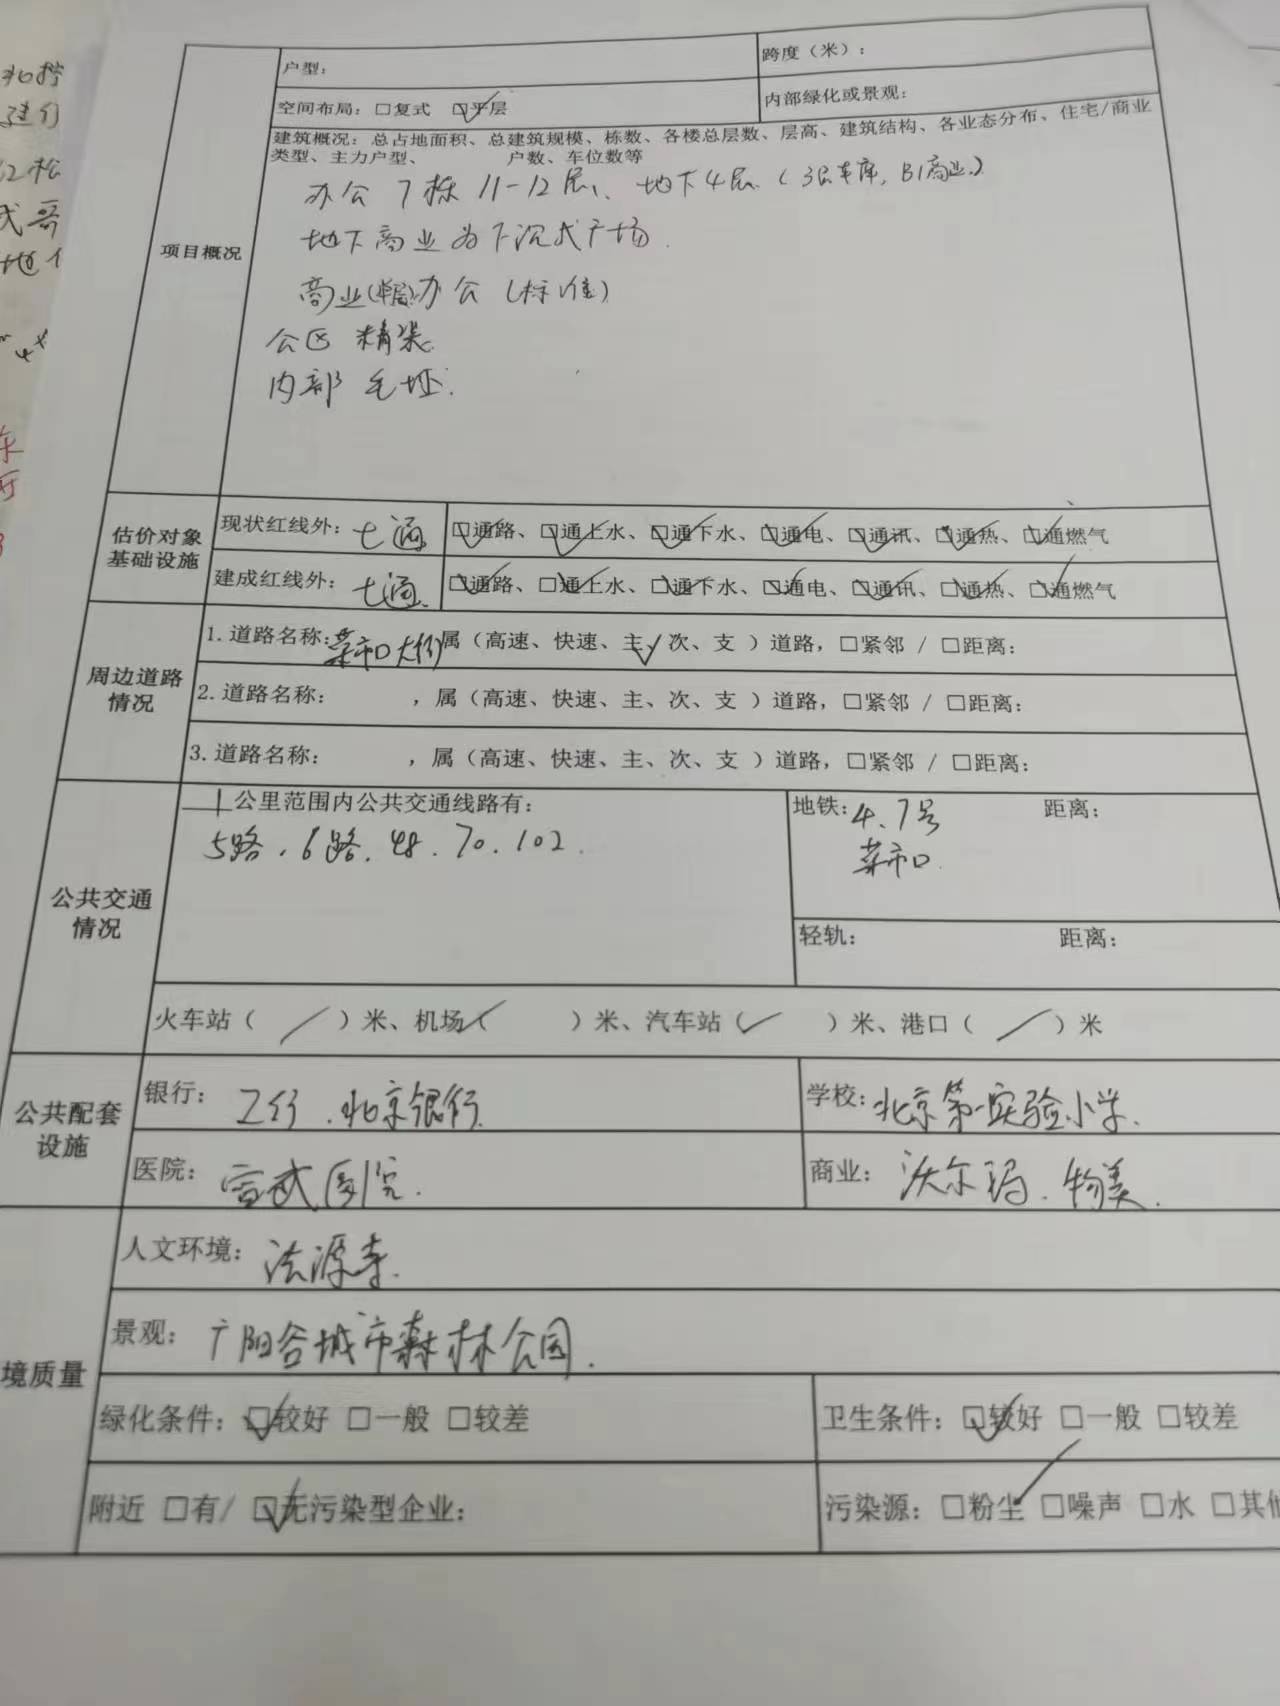 户型：
跨度（米）：
空间布局：□复式 ☑平层
内部绿化或景观：
建筑概况：总占地面积、总建筑规模、栋数、各楼总层数、层高、建筑结构、各业态分布、住宅/商业
类型、主力户型、 户数、车位数等
项目概况
办公 7栋 11-12层、地下4层（3层车库, B1商业.）
地下商业为下沉式广场.
商业 办公（标准）
公区 精装.
内部 毛坯.
估价对象
基础设施
现状红线外：七通
☑通路、☑通上水、☑通下水、☑通电、☑通讯、☑通热、☑通燃气
建成红线外：七通.
☑通路、☑通上水、☑通下水、☑通电、☑通讯、☑通热、☑通燃气
周边道路
情况
1.道路名称：菜市口大街 属（高速、快速、主✓、次、支 ）道路，□紧邻 / □距离：
2.道路名称： ，属（高速、快速、主、次、支 ）道路，□紧邻 / □距离：
3.道路名称： ，属（高速、快速、主、次、支 ）道路，□紧邻 / □距离：
公共交通
情况
1 公里范围内公共交通线路有：
5路. 6路. 48. 70. 102.
地铁：4. 7号 距离：
菜市口
轻轨： 距离：
火车站（ ／ ）米、机场（ ／ ）米、汽车站（ ✓ ）米、港口（ ／ ）米
公共配套
设施
银行：工行. 北京银行.
学校：北京第一实验小学.
医院：宣武医院.
商业：沃尔玛. 物美.
境质量
人文环境：法源寺.
景观：广阳谷城市森林公园.
绿化条件：☑较好 □一般 □较差
卫生条件：☑较好 □一般 □较差
附近 □有/ ☑无污染型企业：
污染源：□粉尘 □噪声 □水 □其他